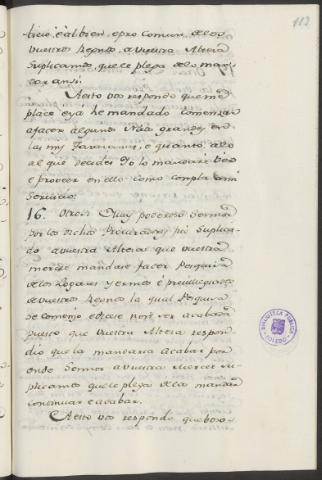 112
licio, è al bien, è pro comun de los
vuestros Regnos, a vuestra Alteza
suplicamos, que le plega de lo man-
dar ansi.
A esto vos respondo que me
place e ya he mandado comenzar
a facer algunas Naos grandes en
las mis Tarazanas, e quanto a lo
al que decides Yo lo mandare ver
e proveer en ello como cumpla a mi
servicio.
16. Otrosi Muy poderoso Señor
por los dichos Procuradores fue suplica-
do a vuestra Alteza que vuestra
merced mandase facer Pesquisa
de los Logares yermos è previllegiados
de vuestros Regnos la qual Pesquisa
se comenzo e dice non ser acabada
puesto que Vuestra Alteza respon-
dio que la mandaria acabar por
ende Señor a vuestra merced su-
plicamos que le plega de la mandar
continuar e acabar.
A esto vos respondo que bos-
BIBLIOTECA PUBLICA
TOLEDO